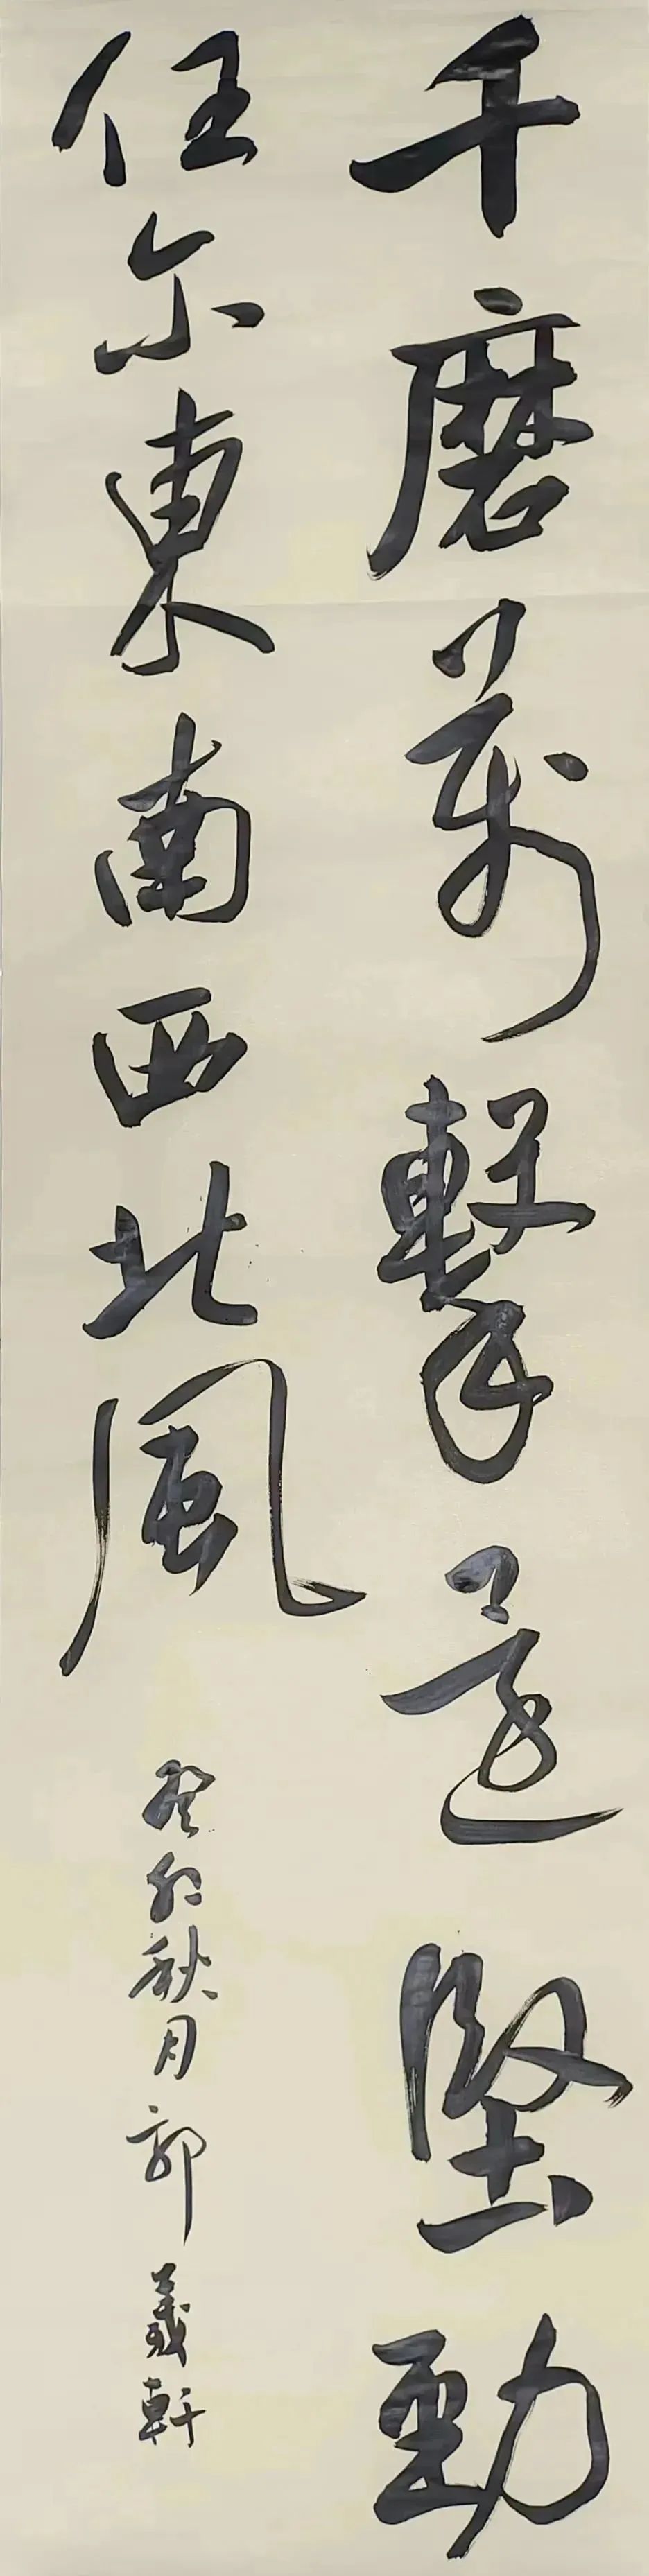 千磨萬擊還堅勁
任尔東南西北風
癸卯秋月郭義軒